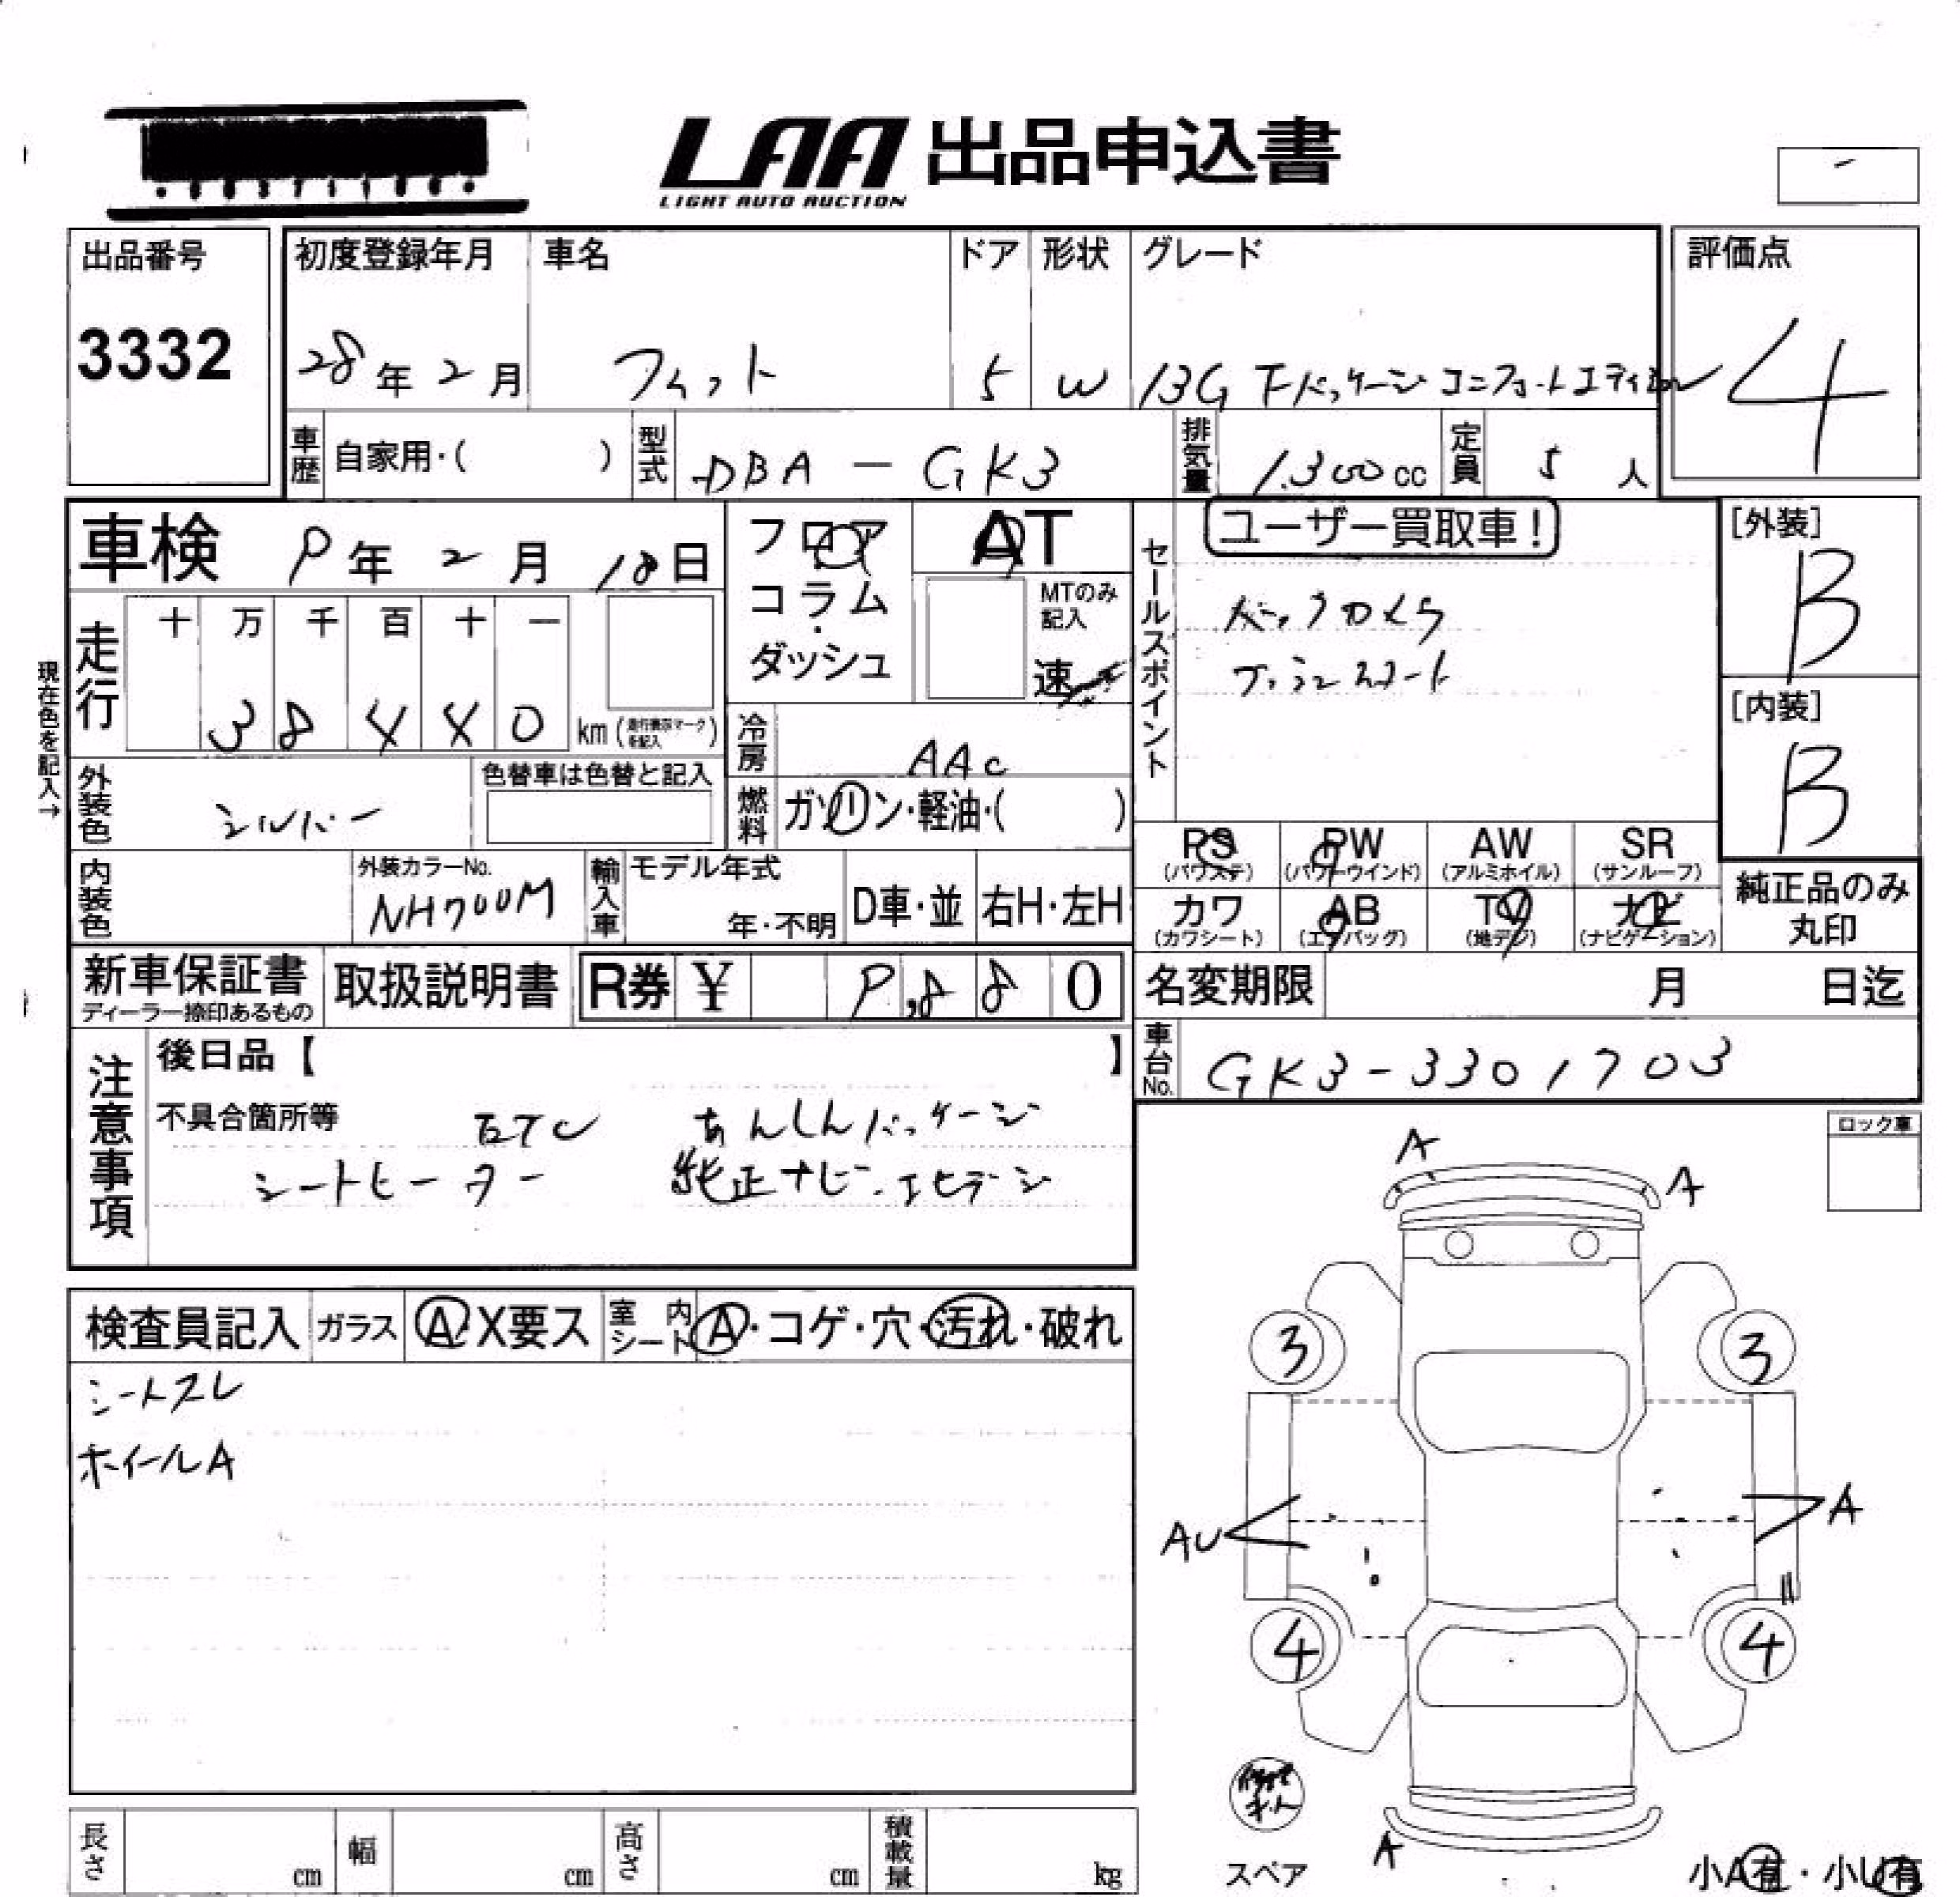 LAA 出品申込書
LIGHT AUTO AUCTION
出品番号 初度登録年月 車名 ドア 形状 グレード 評価点
3332 28年2月 フィット 5 W 13G Fパッケージ コンフォートエディション 4
車歴 自家用・( ) 型式 DBA - GK3 排気量 1.300cc 定員 5人
車検 9年2月18日 フロア AT ユーザー買取車! [外装]
コラム・ MTのみ記入 セールスポイント バックカメラ B
走行 十 万 千 百 十 一 ダッシュ 速 プッシュスタート
38440 km(走行表示マークを記入) [内装]
現在色を記入→ 冷房 AAC B
外装色 シルバー 色替車は色替と記入 燃料 ガソリン・軽油・( )
PS PW AW SR
(パワステ) (パワーウインド) (アルミホイル) (サンルーフ)
内装色 外装カラーNo. NH700M 輸入車 モデル年式 年・不明 D車・並 右H・左H
カワ AB TV ナビ 純正品のみ丸印
(カワシート) (エアバッグ) (地デジ) (ナビゲーション)
新車保証書 取扱説明書 R券 ¥ 9,880 名変期限 月 日迄
ディーラー捺印あるもの
車台No. GK3-3301703
注意事項 後日品【 】
不具合箇所等 ETC あんしんパッケージ
シートヒーター 純正ナビ
ロック車
検査員記入 ガラス A・X要ス 室内シート A・コゲ・穴・汚れ・破れ
シートスレ
ホイールA
A
A
3 3
AU A
4 4
A
スペア 小A有・小U有
長さ cm 幅 cm 高さ cm 積載量 kg